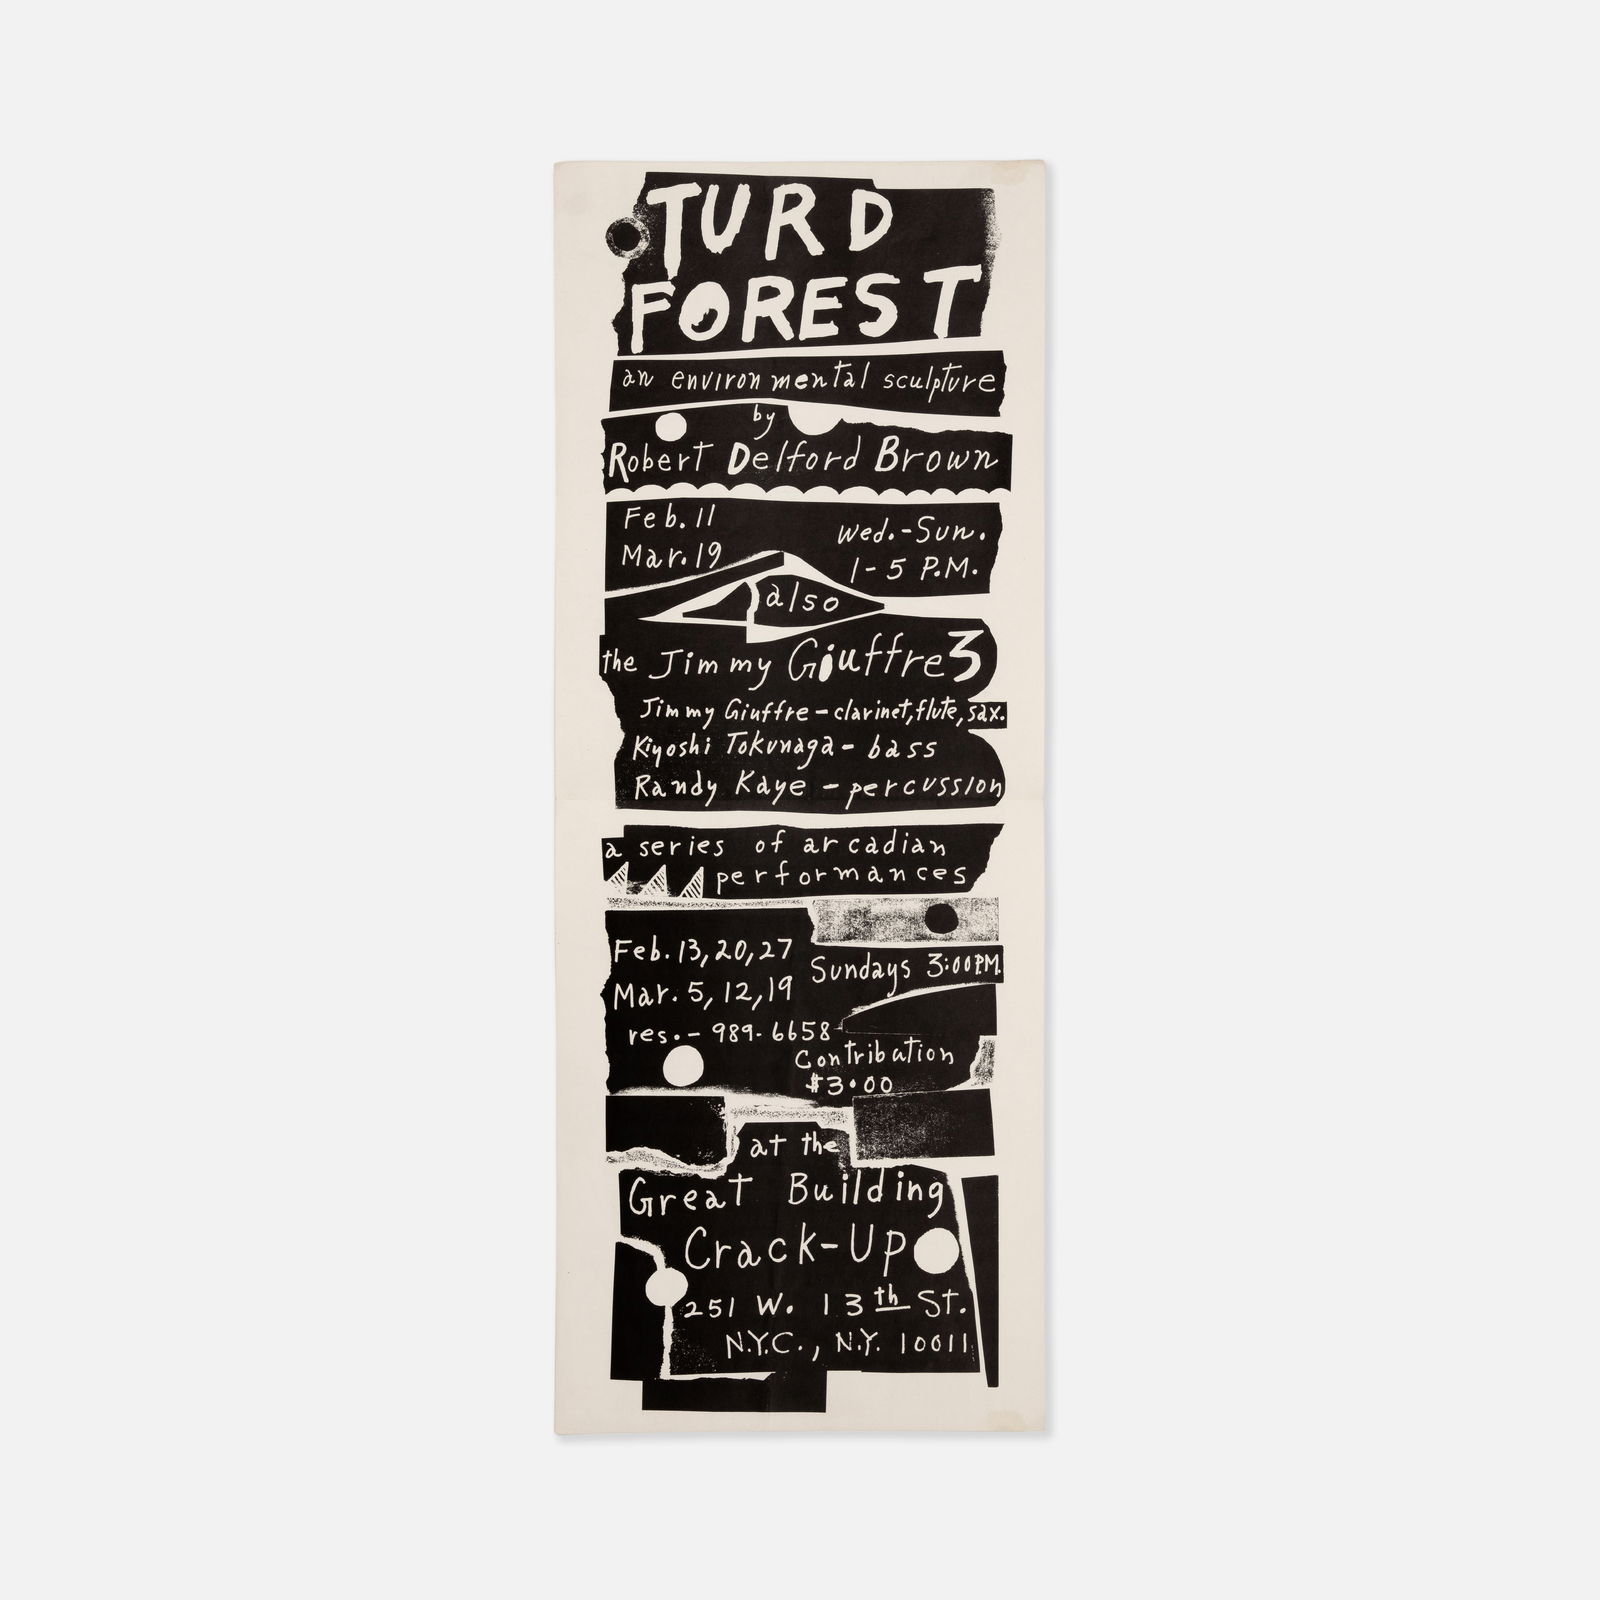 TURD
FOREST
an environmental sculpture
by
Robert Delford Brown
Feb. 11
Mar. 19
Wed.-Sun.
1-5 P.M.
also
the Jimmy Giuffre 3
Jimmy Giuffre - clarinet, flute, sax.
Kiyoshi Tokunaga - bass
Randy Kaye - percussion
a series of arcadian
performances
Feb. 13, 20, 27
Mar. 5, 12, 19
Sundays 3:00 P.M.
res. - 989-6658
Contribution
$3.00
at the
Great Building
Crack-Up
251 W. 13th St.
N.Y.C., N.Y. 10011